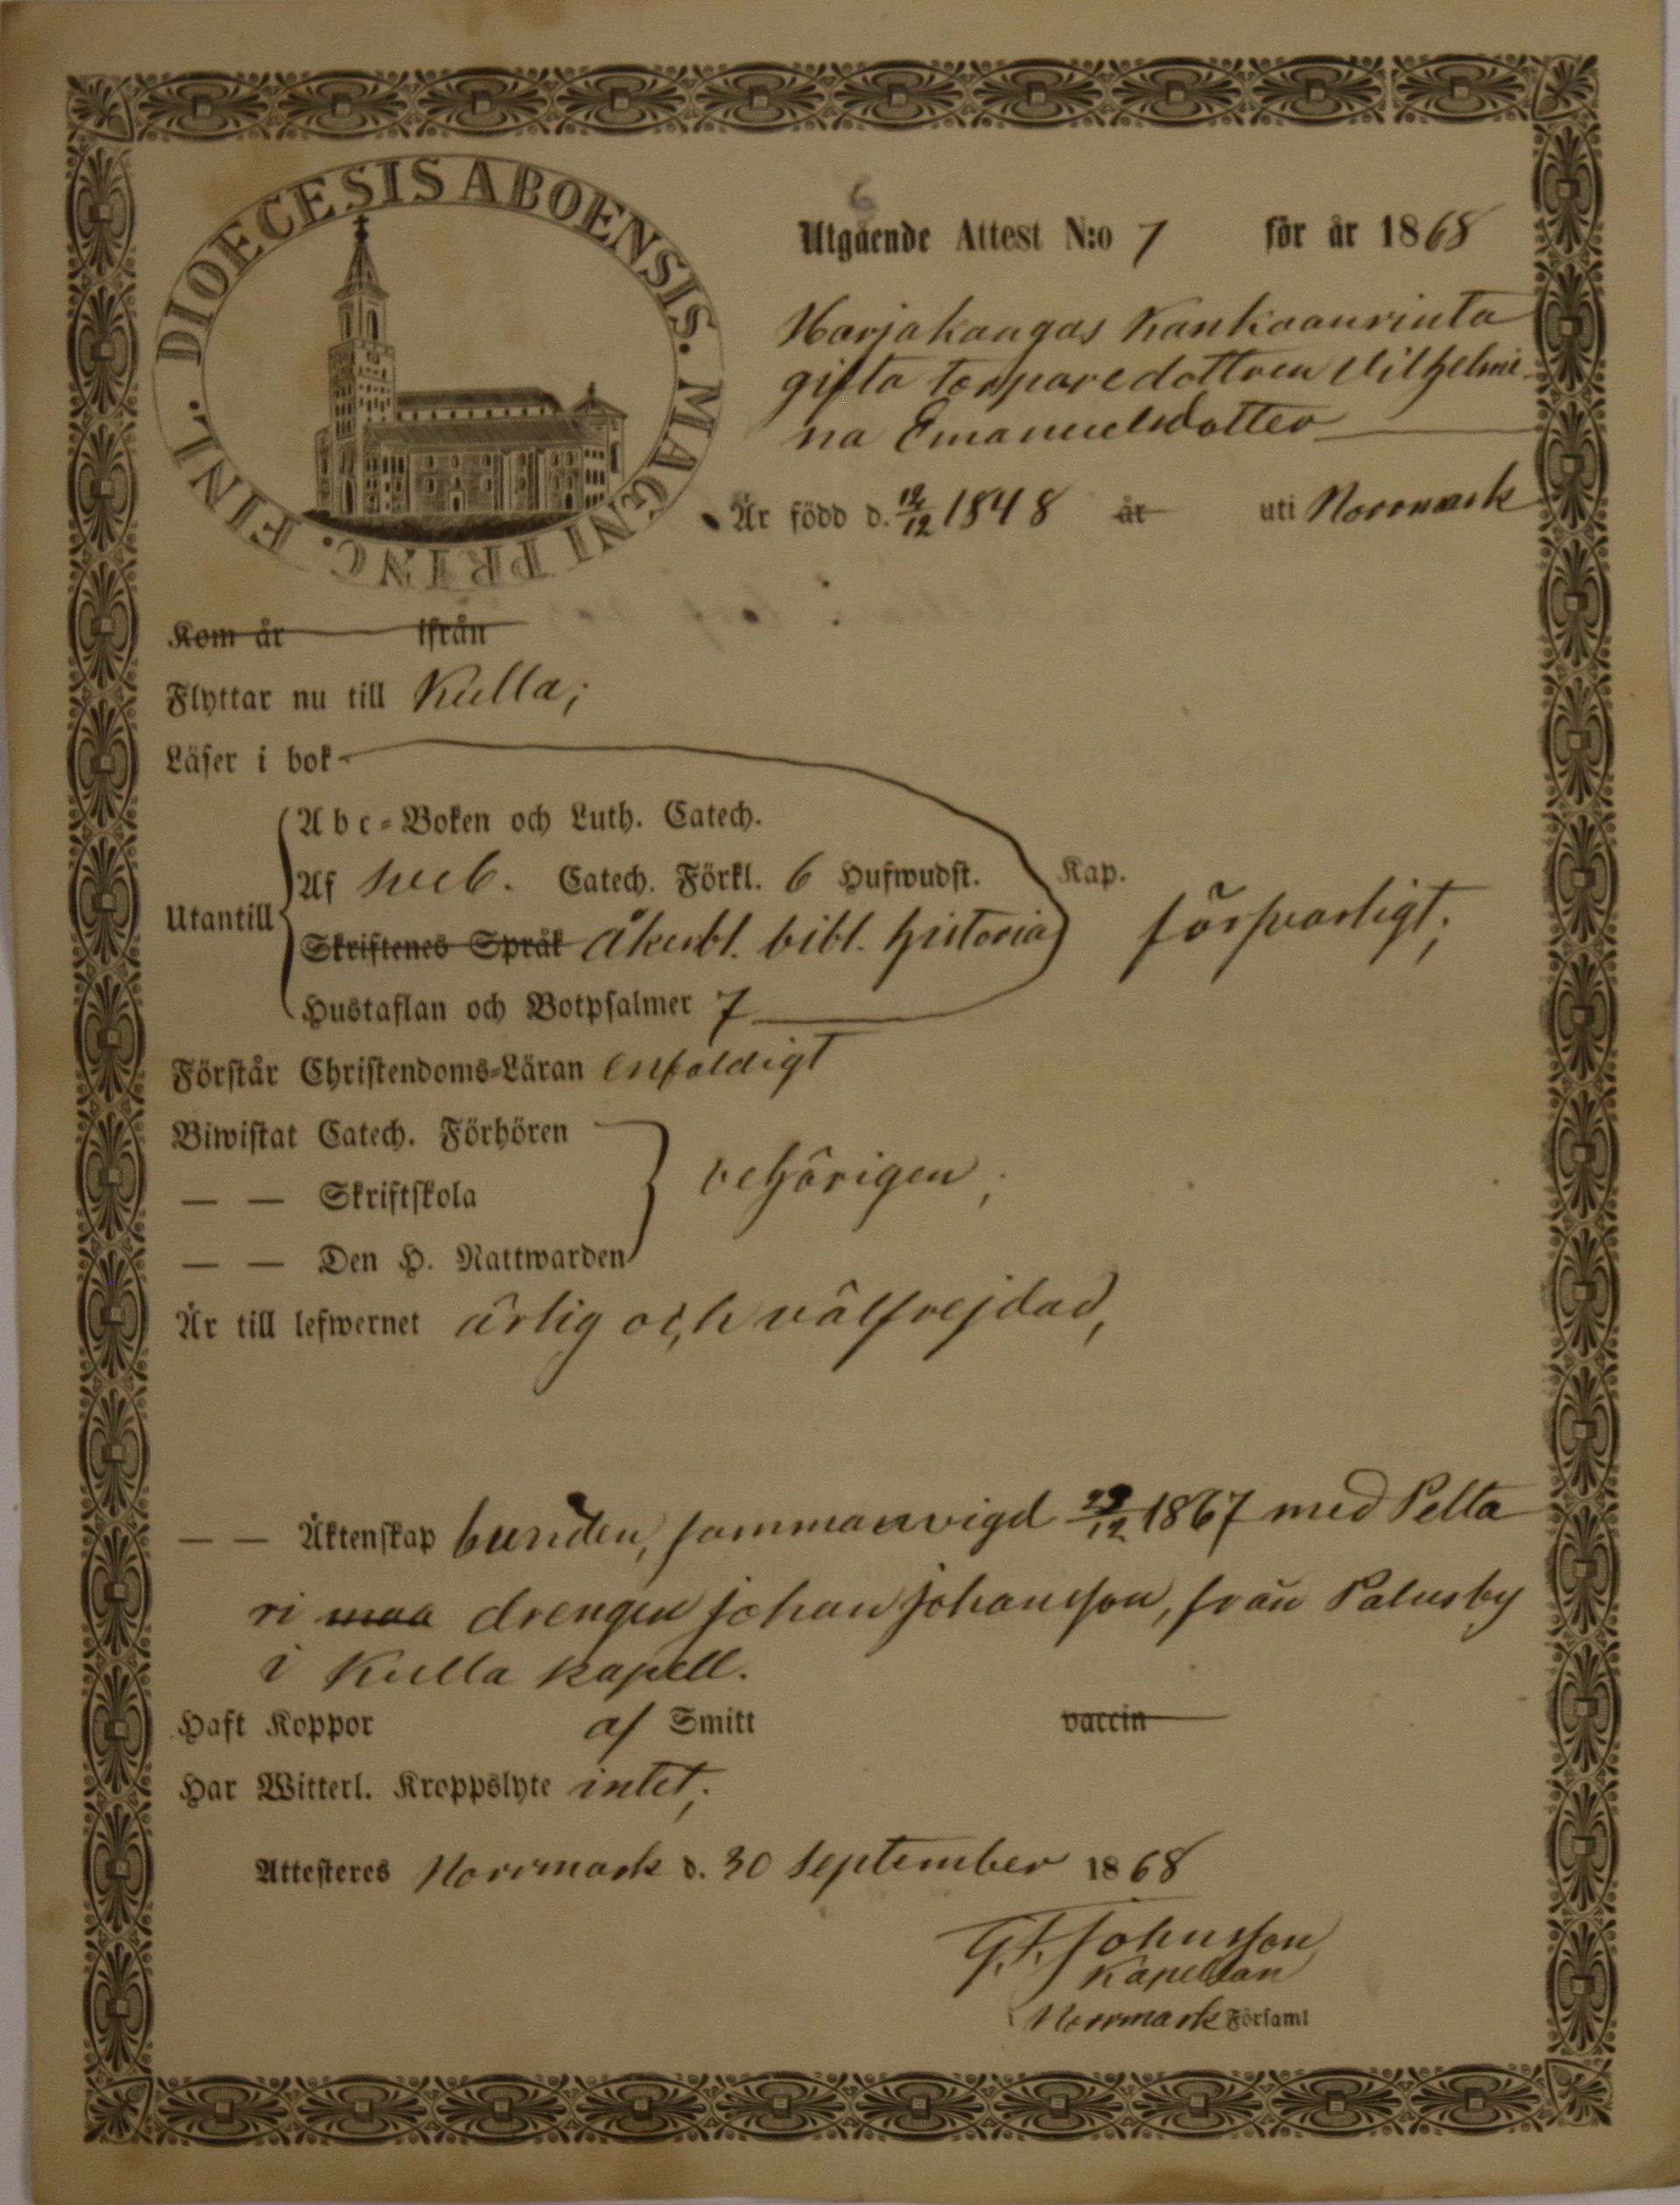 DIOECESIS ABOENSIS. MAGNI PRINC. FINL.
6
Utgående Attest N:o 7 för år 1868
Harjakangas Kankaanrinta
gifta torparedottren Vilhelmi-
na Emanuelsdotter
Är född d. 12/12 1848 år uti Norrmark
Kom år ifrån
Flyttar nu till Kulla;
Läser i bok
Abc-Boken och Luth. Catech.
Af sveb. Catech. Förkl. 6 Hufwudst. Kap.
Utantill
Skriftenes Språk åkerbl. bibl. historia försvarligt;
Hustaflan och Botpsalmer 7
Förstår Christendoms-Läran enfaldigt
Biwistat Catech. Förhören
— — Skriftskola behörigen,
— — Den H. Nattwarden
Är till lefwernet ärlig och välfrejdad,
— — Äktenskap bunden, sammanvigd /12 1867 med Pelta
ri maa drengen Johan Johansson, från Palusby
i Kulla kapell.
Haft Koppor af Smitt vaccin
Har Witterl. Kroppslyte intet;
Attesteres Norrmark d. 30 September 1868
G. F. Johnsson
Kapellan
i Norrmark Församl